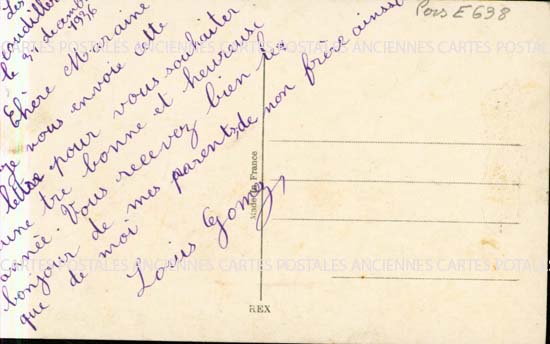 Les
le 31 décembre
1976
Chère Marraine
je nous envoie cette
lettre pour vous souhaiter
une tre bonne et heureuse
année. Vous recevez bien les
bonjour de mes parents, de non frère ainssi
que de moi
Louis Gomez
Pors E 698
Made in France
REX
CARTES POSTALES ANCIENNES CARTES POSTALES ANCIENNES